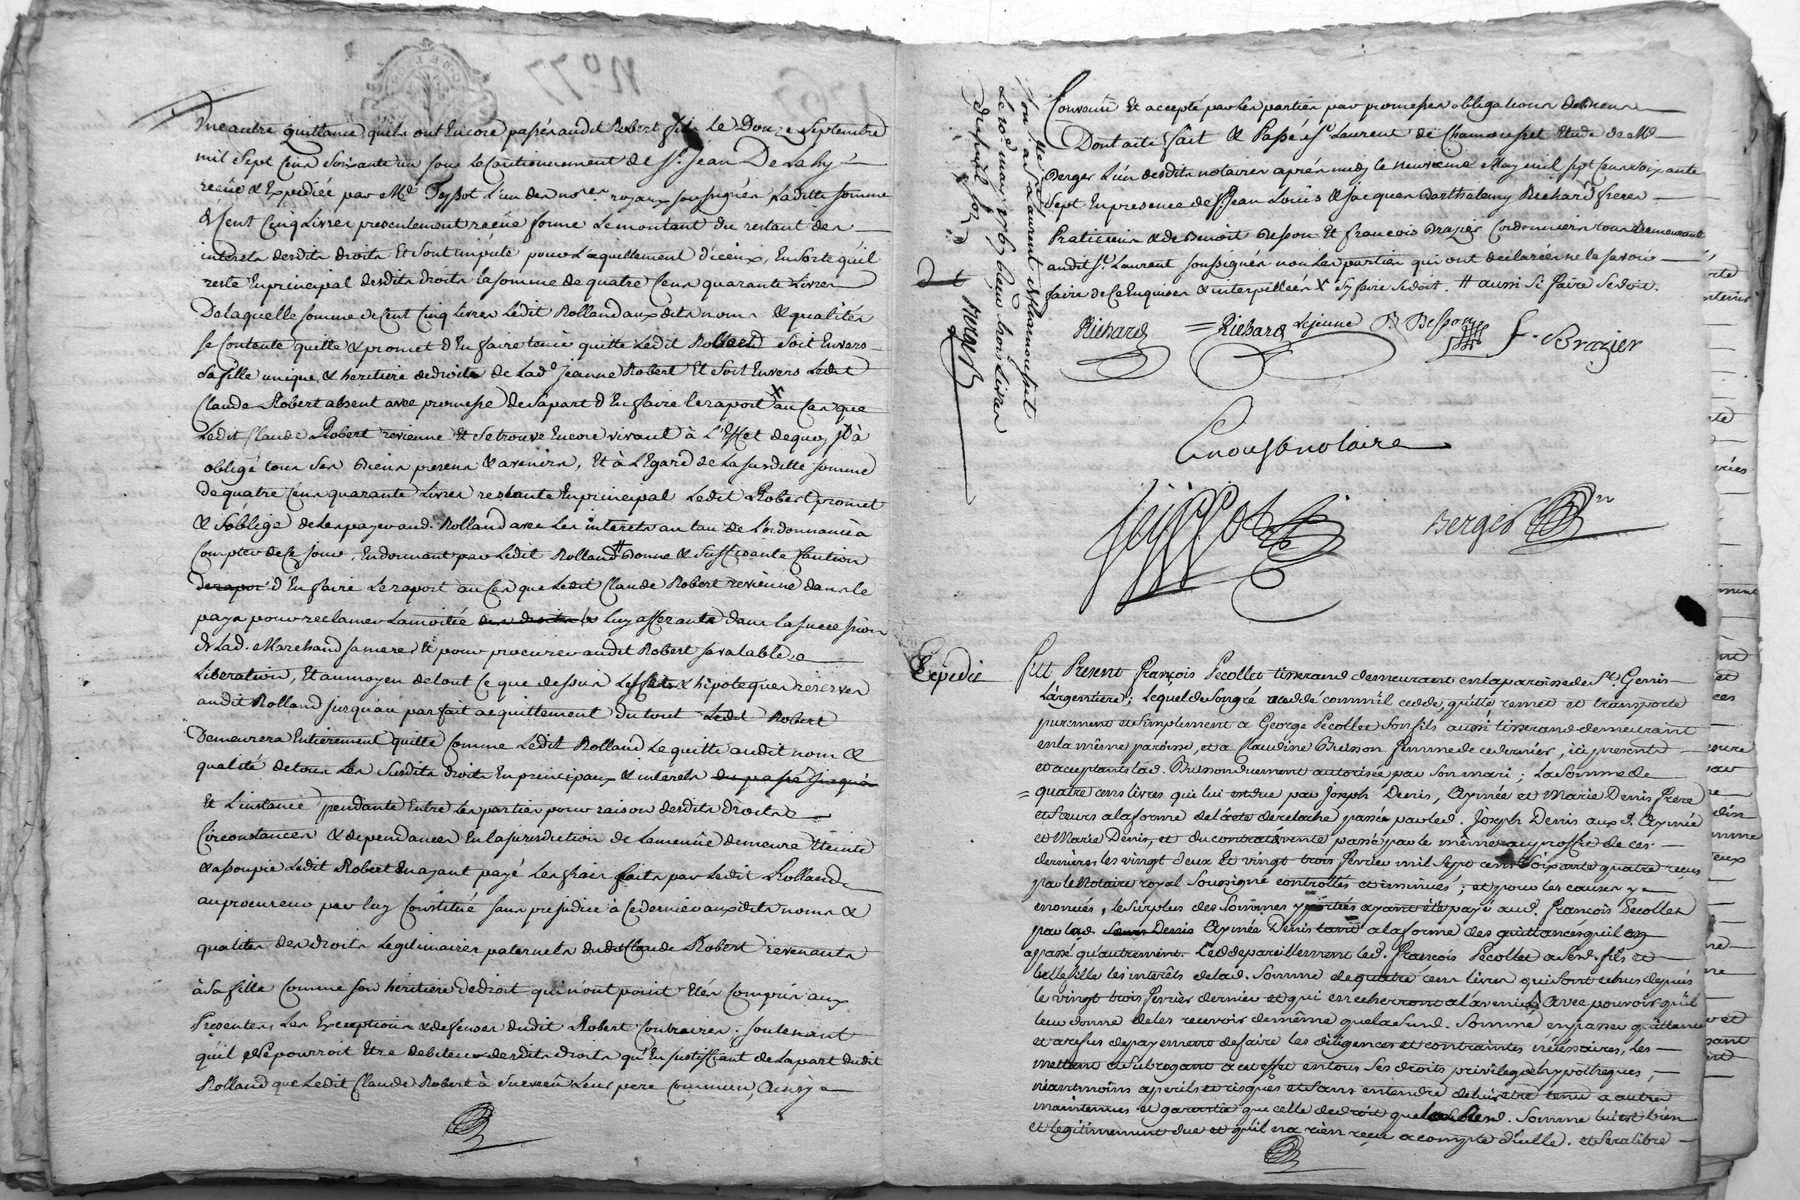 Une autre quittance qu'ils ont Encore passée audit Robert fils Le Douze Septembre
mil Sept Cens Soixante un sous le Cautionnement de Sr. Jean De Lahy
recüe & Expediée par Me. Teyssot L'un des nores. royaux soussignés Laditte somme
de Cent Cinq Livres presentement recüe forme Le montant du restant des
interets desdits droits Et sont imputé pour L'aquittement d'iceux, En sorte qu'il
reste En principal desdits droits la somme de quatre Cens quarante Livres
De laquelle somme de Cent Cinq Livres Ledit Rolland aux dits noms & qualités
se Contente quitte & promet d'En faire tenir quitte Ledit Robert Soit Envers
Sa fille unique, & heritiere de droit de Lade. Jeanne Robert Et Soit Envers Ledit
Claude Robert absent avec promesse de Sa part d'En faire le raport au Cas que
Ledit Claude Robert revienne Et Se trouve Encore vivant à L'Effet de quoy Il à
obligé tous Ses Biens presens & avenirs, Et à L'Egard de La susditte somme
De quatre Cens quarante Livres restante En principal Ledit Robert promet
& S'oblige de Les payer aud. Rolland avec Les interets au taux de L'ordonnance à
Compter de Ce jour. En donnant par Ledit Rolland # Bonne & Suffisante Caution
de rapor d'En faire Le raport au Cas que Ledit Claude Robert revienne dans le
pays pour reclamer La moitié des droits Luy afferante dans la succession
de Lad. Marchand sa mere, Et pour procurer audit Robert sa valable
Liberation, Et au moyen de tout Ce que dessus Les & hipoteques reservés
audit Rolland jusqu'au parfait acquittement du tout Ledit Robert
Demeurera Entierement quitte Comme Ledit Rolland Le quitte audit nom &
qualité de tous Les Susdits droits En principaux & interets du passé jusqu'à
Et L'instance pendante Entre Les parties pour raison desdits droits
Circonstances & dependances En la jurisdiction de Lameure demeure Eteinte
& assoupie Ledit Robert En ayant payé Les frais faits par Ledit Rolland
au procureur par luy Constitué sans prejudice à Ce dernier aux dits noms &
qualités des droits Legitimaires paternels dudit Claude Robert revenants
à Sa fille Comme son heritiere de droit qui n'ont point Etés Compris aux
Presentes, Les Exceptions & defenses dudit Robert Contraires. soutenant
qu'il ne pourroit Etre debiteur desdits droits qu'En justiffiant de La part dudit
Rolland que Ledit Claude Robert à Survecu Leur pere Commun, Ainsy
Con. a St. Laurent de Chamousset
Le 10e. may 1767 Reçu trois Livres
Berger
Convenu Et accepté par Les parties par promesses obligations de biens
Dont acte fait & Passé à St. Laurent de Chamousset Etude de Me.
Berger L'un desdits notaires après midy le neuvieme May mil sept cens soixante
Sept En presence de Srs. Jean Louis & Jacques Barthelemy Richard freres
Praticiens & de Benoit Besson Et francois Brazier Cordonniers tous Demeurant
audit St. Laurent soussignés non Les parties qui ont déclarées ne le savoir
faire de Ce Enquises & interpellées X # aussi Se faire Se doit.
Richard = Richard Lejeune B Besson f. Brazier
Teyssot Berger
Expedié
Fut Present François Pecollet tisserand demeurant en la paroisse de St. Genis
L'argentiere; Lequel de son gré a cedé comm'il cedde, quitte, remet et transporte
purement et simplement a George Pecollet son fils aussi tisserand demeurant
en la même paroisse, et a Claudine Brisson femme de ce dernier, ici presents
et acceptants lad. Brisson duement autorisée par son mari; La somme de
quatre cens livres qui lui est due par Joseph Denis, Aymée et Marie Denis frere
et sœurs a la forme de l'acte de relache passée par led. Joseph Denis aux d. Aymée
et Marie Denis, et du contrat de vente passé par le même au proffit de ces
dernieres les vingt deux Et vingt trois fevrier mil sept cens Soixante quatre reçus
par le Notaire royal Soussigné controllés et insinués; et pour les causes y
enoncées, le surplus des Sommes y portées ayant été payé aud. François Pecollet
par lad. Denis Aymée Denis a la forme des quittances qu'il en
a passé qu'autrement. Cedde pareillement led. François Pecollet a Sesd. fils et
belle fille les interêts de lad. Somme de quatre cens livres qui sont echus depuis
le vingt trois fevrier dernier et qui en echerront a l'avenir, avec pouvoir qu'il
leur donne de les recevoir de même que lasusd. Somme en passer quittance
et a refus de payement de faire les diligences et contraintes nécéssaires, les
mettant et Subrogeant a cet effet en tous Ses droits privileges et hypotheques;
néantmoins a perils et risques et sans entendre de lui etre tenu a autre
maintenue et garantie que celle de droit que lad. Somme lui est bien
et legitimement due et qu'il n'a rien reçu a compte d'icelle. et Sera libre